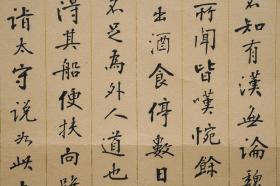 名知有漢無論魏
所聞皆嘆惋餘
出酒食停數日
不足為外人道也
得其船便扶向路
詣太守説如此太